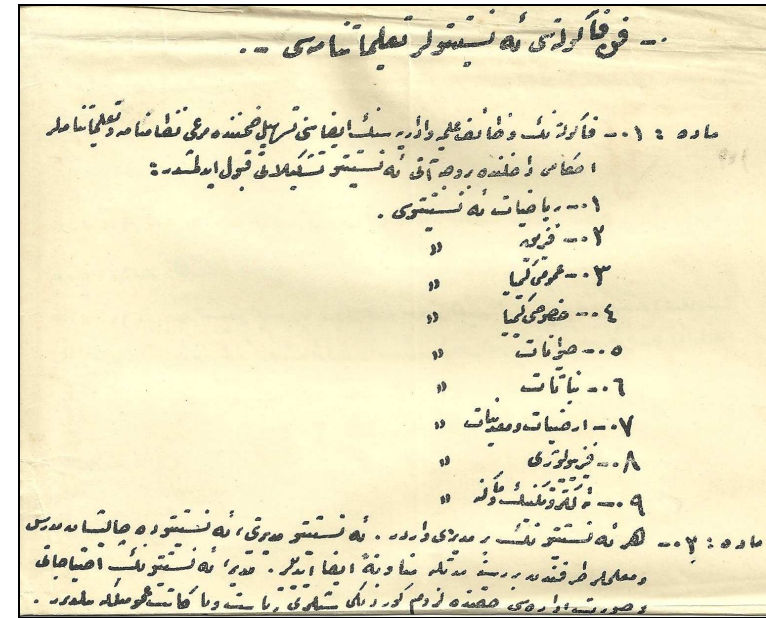 .- فن فاكولته‌سى ئه نستيتولر تعليماتنامه‌سى -.
ماده : ٠١- فاكولته‌نك وظائف علميه و اداريه‌سنك ايفاسنى تسهيل ضمننده مرعى نظامنامه و تعليماتنامه‌لر
احكامى داخلنده بروجه آتى ئه نستيتو تشكيلاتى قبول ايدلمشدر :
٠١- رياضيات ئه نستيتوسى .
٠٢- فزيق »
٠٣- عمومى كيميا »
٠٤- خصوصى كيميا »
٠٥- حيوانات »
٠٦- نباتات »
٠٧- ارضيات ومعدنيات »
٠٨- فزيولوژى »
٠٩- ئه لكترومكنيك و ماكنه »
ماده : ٠٢- هر ئه نستيتونك بر مديرى واردر . ئه نستيتو مديرتى ، ئه نستيتوده چاليشان مدرس
ومعلملر طرفندن برر سنه مدتله مناوبةً ايفا ايديلير . مدير ، ئه نستيتونك احتياجاتى
وصورت اداره‌سى حقنده لزوم كورديكى شيلرى رياست ويا كاتب عموميلكه بيلديرر .